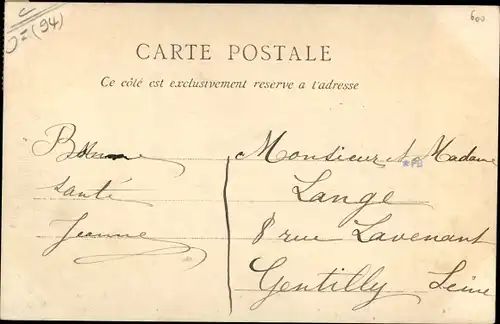 C
D=(94)
600
CARTE POSTALE
Ce côté est exclusivement reserve a l'adresse
Bonne
santé
Jeanne
Monsieur et Madame
Lange
8 rue Lavenant
Gentilly Seine